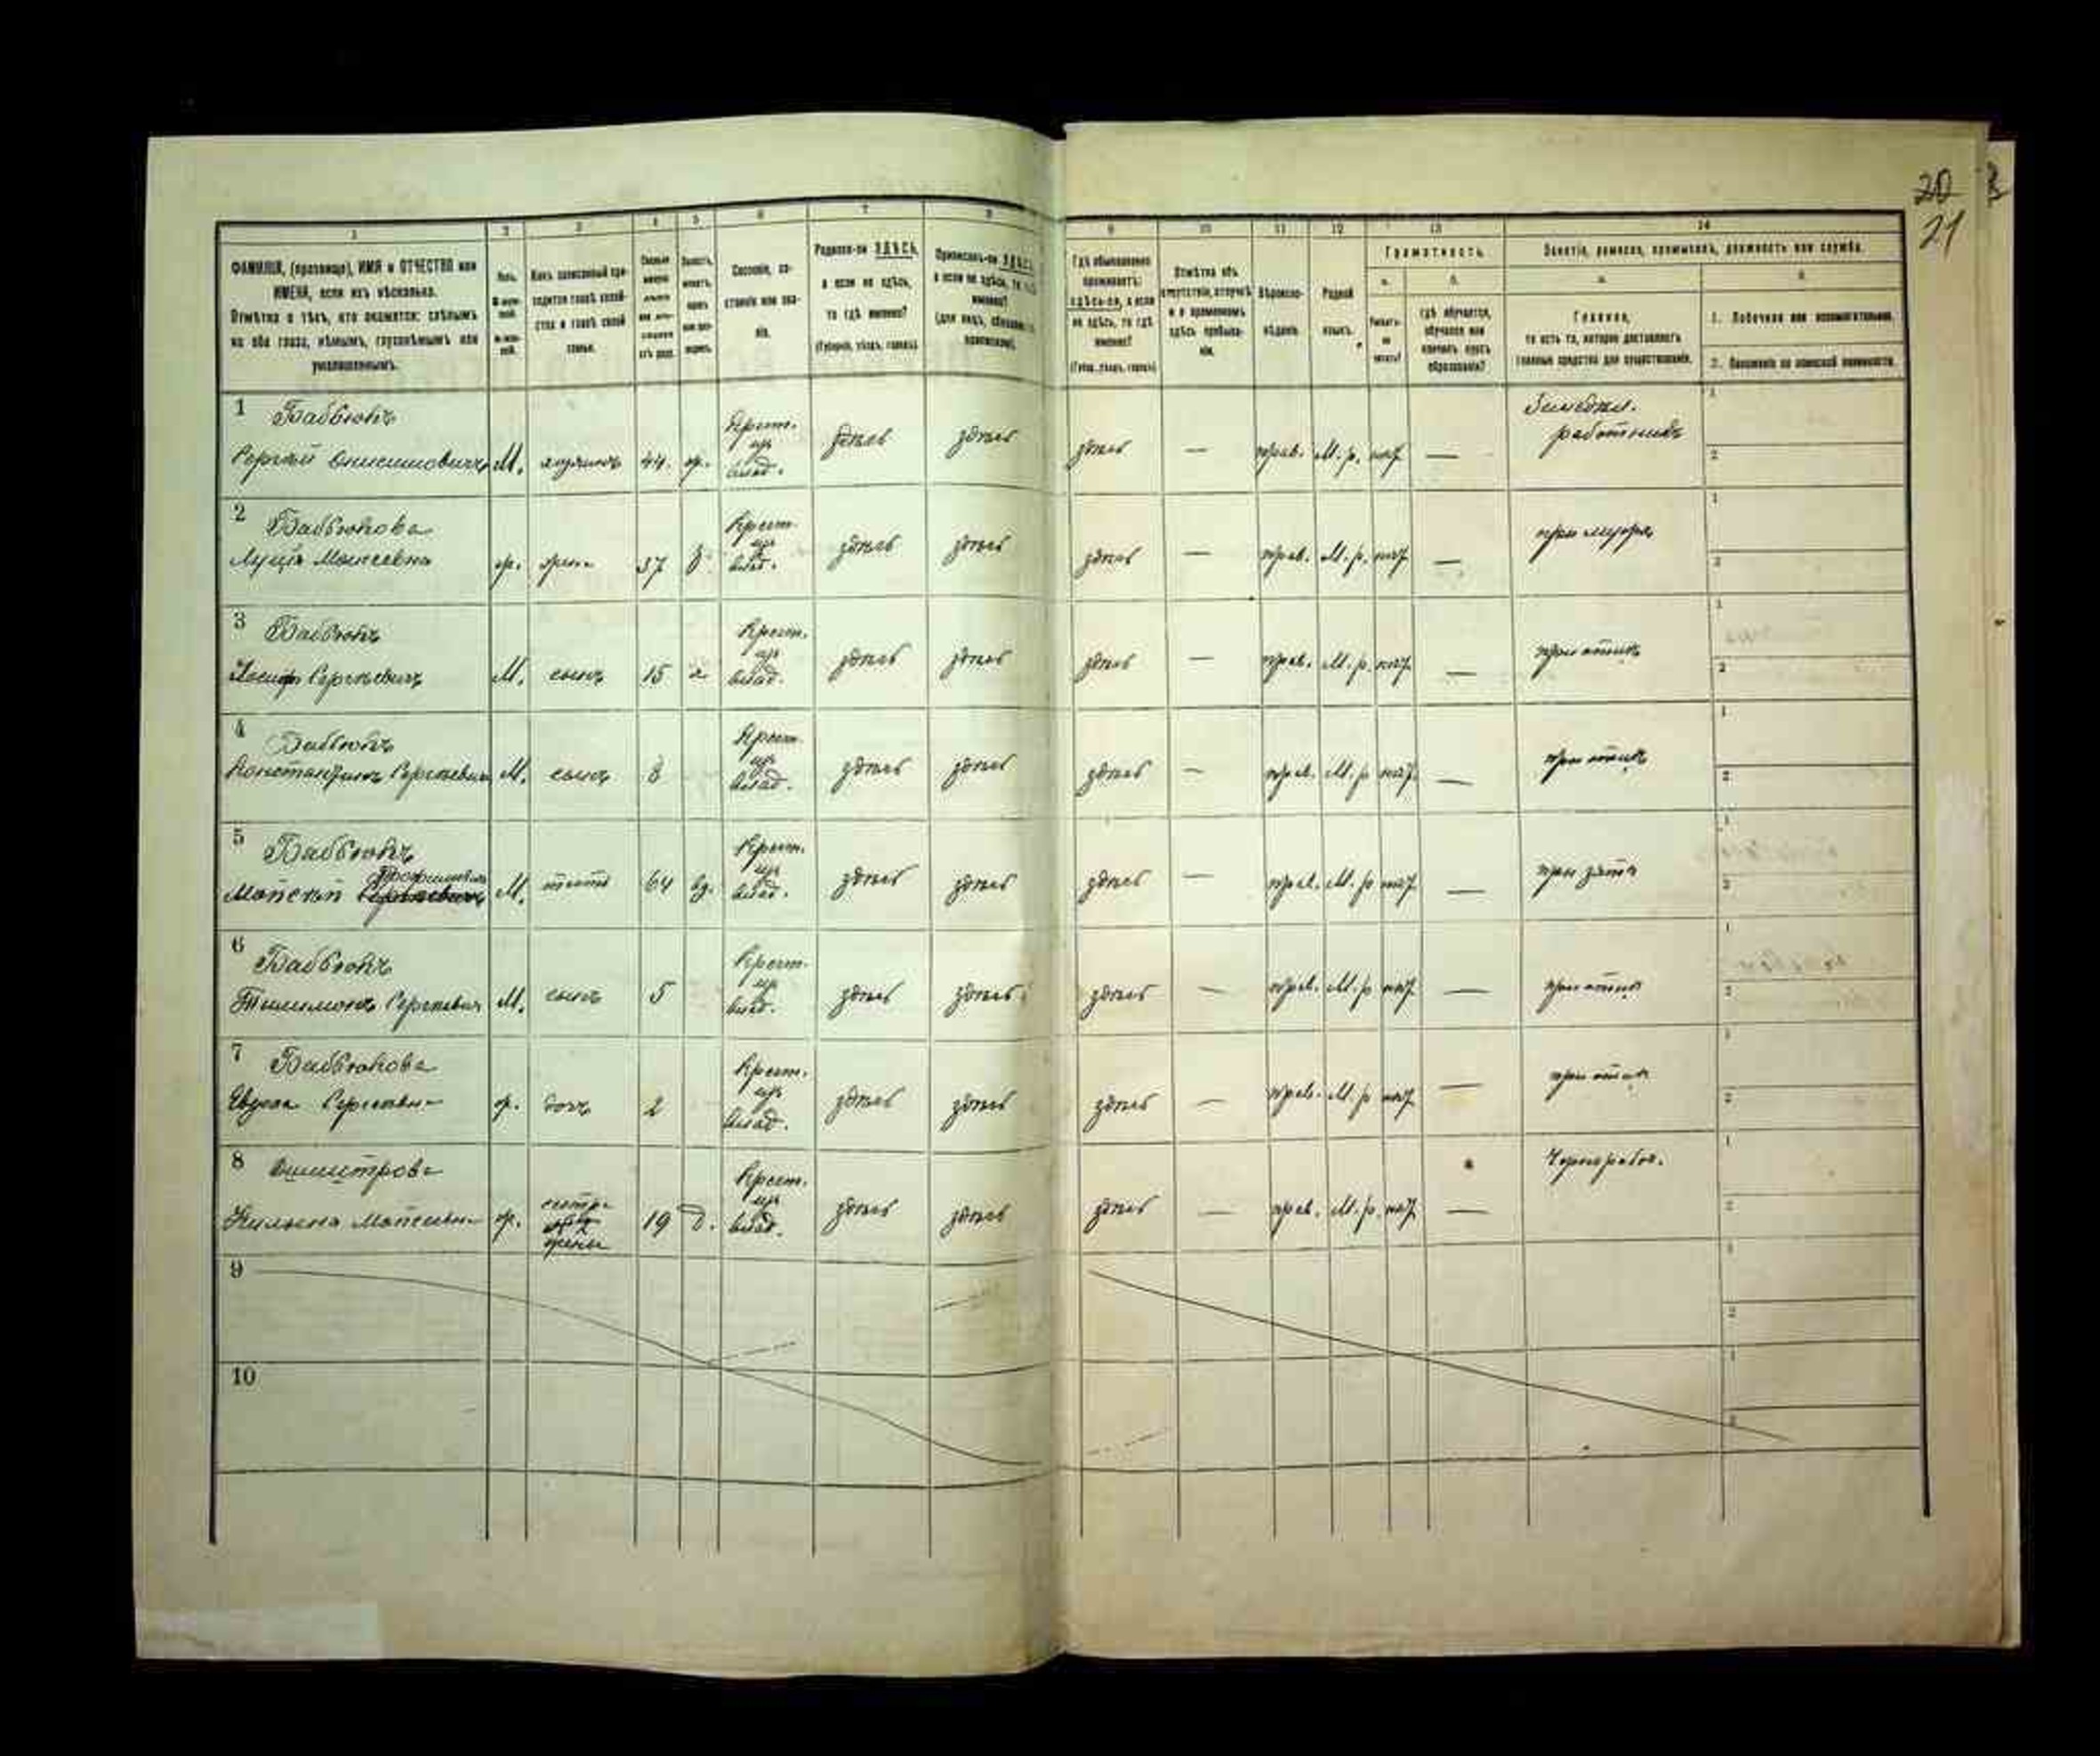 20
21
1 2 3 4 5 6 7 8 9 10 11 12 13 14
ФАМИЛІЯ, (прозвище), ИМЯ и ОТЧЕСТВО или
ИМЕНА, если ихъ нѣсколько.
Отмѣтка о тѣхъ, кто окажется: слѣпымъ
на оба глаза, нѣмымъ, глухонѣмымъ или
умалишеннымъ.
Полъ.
Какъ записанный при-
ходится главѣ хозяй-
ства и главѣ своей
семьи.
Сословіе, со-
стояніе или зва-
ніе.
Родился-ли ЗДѢСЬ,
а если не здѣсь,
то гдѣ именно?
(Губернія, уѣздъ, городъ).
Приписанъ-ли ЗДѢСЬ,
а если не здѣсь, то гдѣ
именно?
Гдѣ обыкновенно
проживаетъ:
здѣсь-ли, а если
не здѣсь, то гдѣ
именно?
(Губер., уѣздъ, городъ)
Отмѣтка объ
отсутствіи, отлучкѣ
и о временномъ
здѣсь пребыва-
ніи.
Вѣроиспо-
вѣданіе.
Родной
языкъ.
Грамотность.
а. б.
Умѣетъ-
ли
читать?
гдѣ обучается,
обучался или
кончилъ курсъ
образованія?
Занятіе, ремесло, промыселъ, должность или служба.
а. б.
Главное,
то есть то, которое доставляетъ
главныя средства для существованія.
1. Побочное или вспомогательное.
2. Положеніе по воинской повинности.
1 Бабвюкъ
Сергѣй Онисимовичъ М. хозяинъ 44. ж. Крест. из влад. здѣсь здѣсь здѣсь — прав. М. р. нѣт — Земледѣл. работникъ
2 Бабвюкова
Луція Моисеевна ж. жена 37 з. Крест. из влад. здѣсь здѣсь здѣсь — прав. М. р. нѣт — при мужѣ
3 Бабвюкъ
Іосифъ Сергѣевичъ М. сынъ 15 х. Крест. из влад. здѣсь здѣсь здѣсь — прав. М. р. нѣт — при отцѣ
4 Бабвюкъ
Константинъ Сергѣевичъ М. сынъ 8 Крест. из влад. здѣсь здѣсь здѣсь — прав. М. р. нѣт — при отцѣ
5 Бабвюкъ
Мойсей М. тесть 64 вд. Крест. из влад. здѣсь здѣсь здѣсь — прав. М. р. нѣт — при зятѣ
6 Бабвюкъ
Сергѣевичъ М. сынъ 5 Крест. из влад. здѣсь здѣсь здѣсь — прав. М. р. нѣт — при отцѣ
7 Бабвюкова
Сергѣевна ж. дочь 2 Крест. из влад. здѣсь здѣсь здѣсь — прав. М. р. нѣт — при отцѣ
8 Димитрова
Мойсеевна ж. сестра жены 19 д. Крест. из влад. здѣсь здѣсь здѣсь — прав. М. р. нѣт — Чернорабоч.
9
10